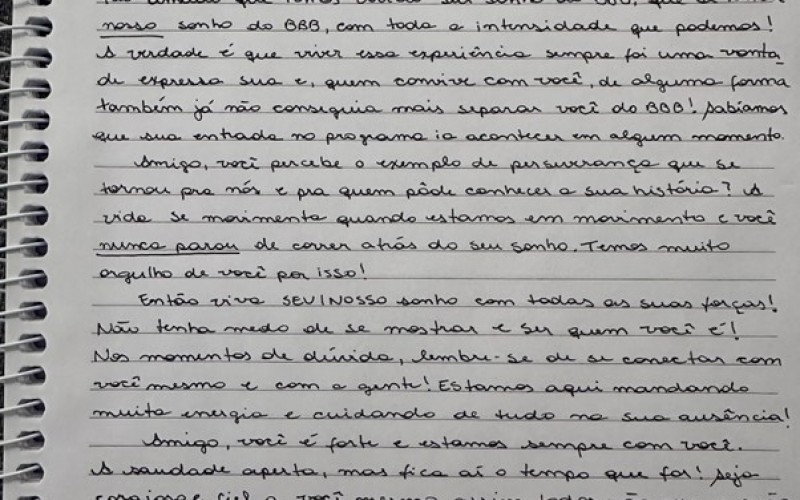 nosso sonho do BBB, com toda a intensidade que podemos!
A verdade é que viver essa experiência sempre foi uma vonta-
de expressa sua e, quem convive com você, de alguma forma
também já não conseguia mais separar você do BBB! Sabíamos
que sua entrada no programa ia acontecer em algum momento.
Amigo, você percebe o exemplo de perseverança que se
tornou pra nós e pra quem pôde conhecer a sua história? A
vida se movimenta quando estamos em movimento e você
nunca parou de correr atrás do seu sonho. Temos muito
orgulho de você por isso!
Então viva SEU/NOSSO sonho com todas as suas forças!
Não tenha medo de se mostrar e ser quem você é!
Nos momentos de dúvida, lembre-se de se conectar com
você mesmo e com a gente! Estamos aqui mandando
muita energia e cuidando de tudo na sua ausência!
Amigo, você é forte e estamos sempre com você.
A saudade aperta, mas fica aí o tempo que for! Seja